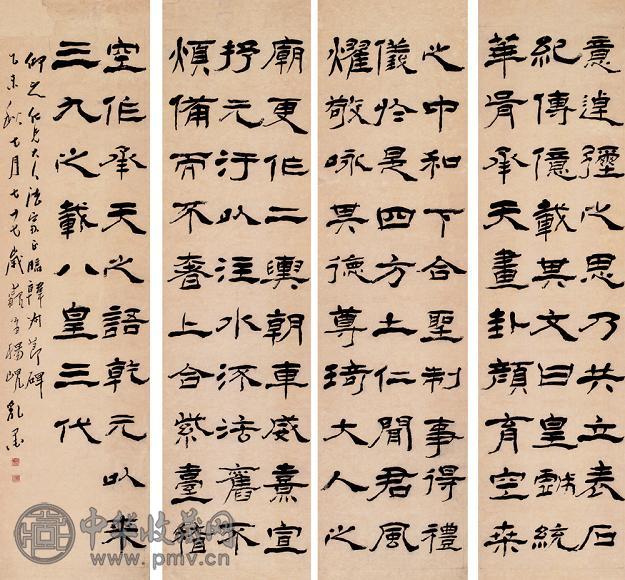 意逴彌之思乃共立表石
紀傳億載其文曰皇戲統
華胥承天畫卦顏育空桑
之中和下合聖制事得禮
儀於是四方土仁聞君風
燿敬咏其德尊琦大人之
廟更作二輿朝車威熹宣
抒元汙以注水流法舊不
煩備而不奢上合紫臺稽
空作承天之語乾元以來
三九之載八皇三代
仰之仁兄大人法家正臨韓勑節碑
乙未秋七月七十七歲藐翁楊峴亂墨
中华收藏网
www.pmv.cn